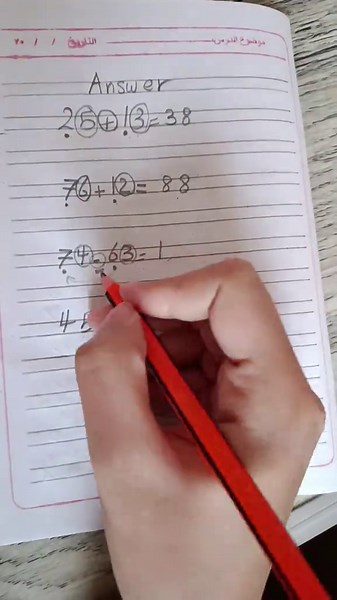 موضوع الدرس: التاريخ / / ٢٠
Answer
25+13=38
76+12= 88
74-63= 1
4